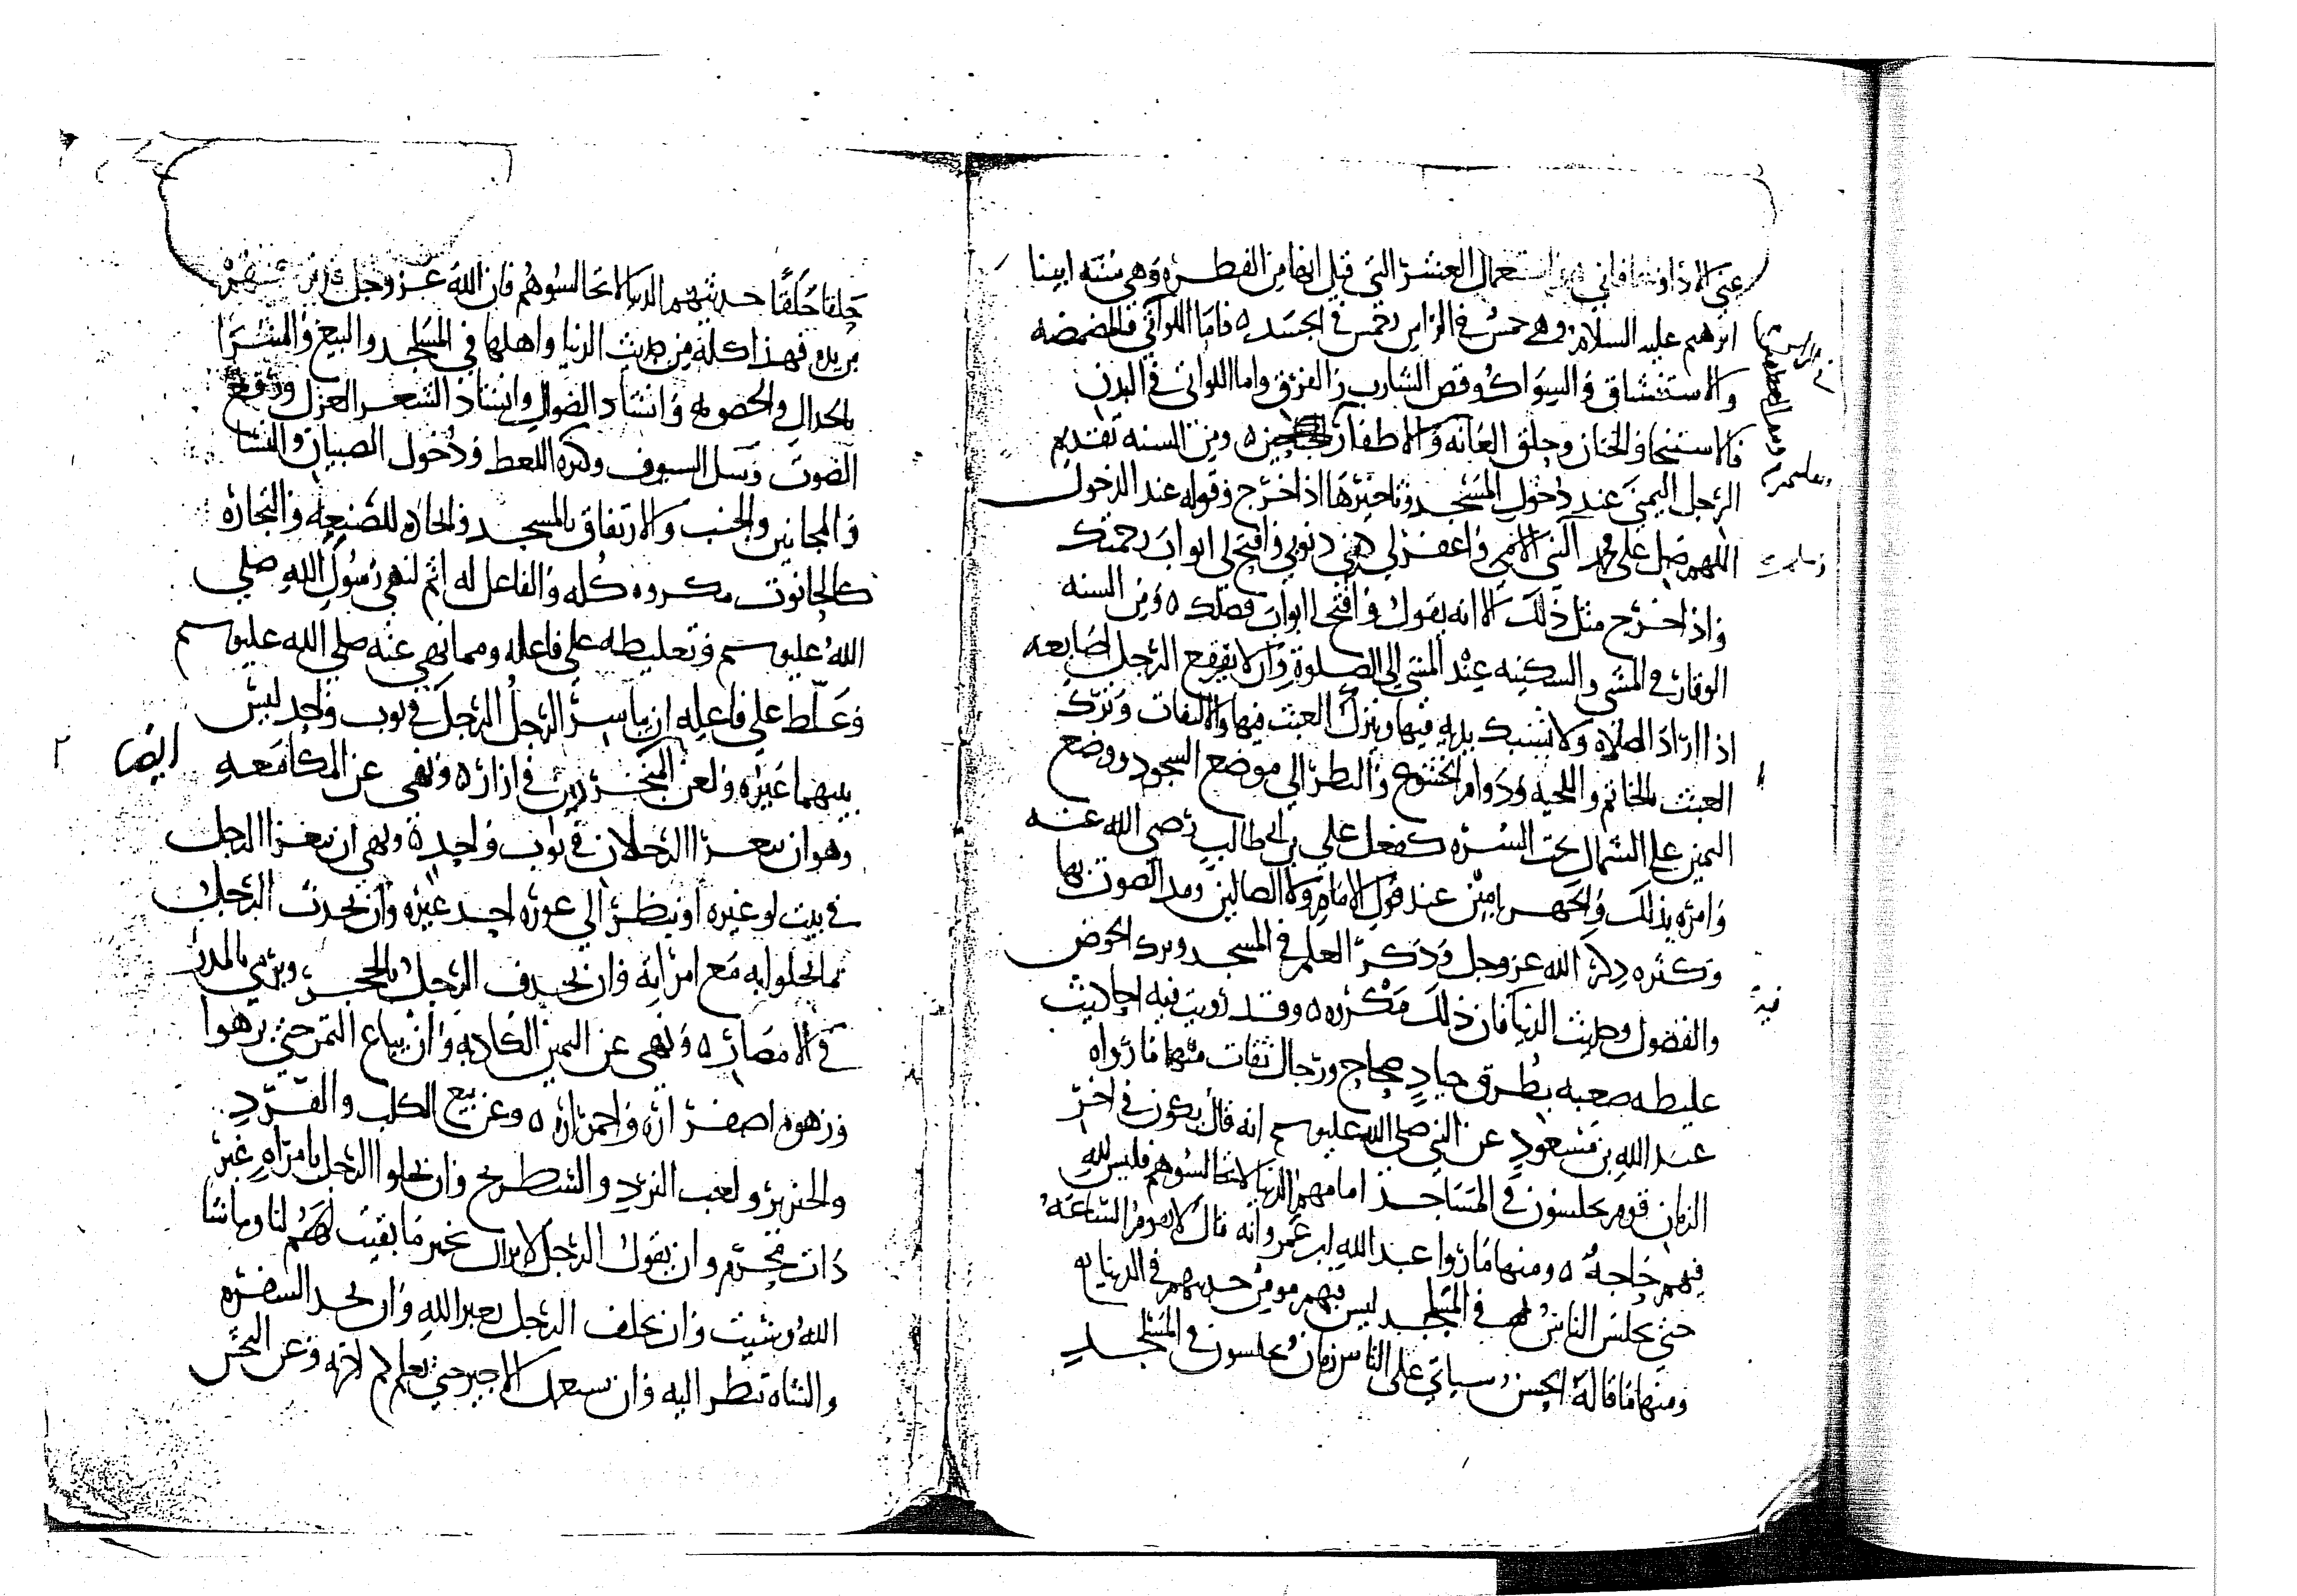 استعمال العشر التي قيل انها من الفطرة وهي سنة ابينا
ابرهيم عليه السلام وهي خمس في الراس وخمس في الجسد ه فاما اللواتي فالمضمضه
والاستنشاق والسواك وقص الشارب والفرق واما اللواتي في البدن
فالاستنجا والختان وحلق العانه والاظفار ه ومن السنه تقديم
الرجل اليمنى عند دخول المسجد وتاخيرها اذا خرج وقوله عند الدخول
اللهم صل على محمد النبي الامي واغفر لي ذنوبي وافتح لي ابواب رحمتك
واذا خرج مثل ذلك الا انه يقول وافتح لي ابواب فضلك ه ومن السنه
الوقار في المشي والسكينه عند المشي الى الصلوة وان لا يفقع الرجل اصابعه
اذا اراد الصلاه ولا يشبك يديه فيها وبترك العبث فيها والالتفات وترك
العبث بالخاتم واللحيه ودوام الخشوع والنظر الى موضع السجود ووضع
اليمين على الشمال تحت السره كفعل علي بن ابي طالب رضي الله عنه
وامره بذلك والجهر بامين عند قول الامام ولا الضالين ومد الصوت بها
وكثره ذكر الله عز وجل وذكر العلم في المسجد وترك الخوض
والفضول وحديث الدنيا فان ذلك مكروه ه وقد رويت فيه احاديث
غليظه صعبه بطرق جياد صحاح ورجال ثقات منها ما رواه
عبد الله بن مسعود عن النبي صلى الله عليه وسلم انه قال يكون في اخر
الزمان قوم يجلسون في المساجد امامهم الدنيا لا تجالسوهم فليس لله
فيهم حاجة ه ومنها ما روا عبد الله ابن عمر وانه قال لا تقوم الساعة
حتى يجلس الناس في المساجد ليس فيهم مومن حديثهم في الدنيا
ومنها ما قاله الحسن سياتي على الناس زمان يجلسون في المساجد
فيه
حلقا حلقا حديثهم الدنيا لا تجالسوهم فان الله عز وجل
من يده فهذا كله من حديث الدنيا واهلها في المساجد والبيع والشرا
والجدال والخصومه وانشاد الضوال وانشاد الشعر الغزل ورفع
الصوت وسل السيوف وكثره اللغط ودخول الصبيان والنسا
والمجانين والجنب والارتفاق بالمسجد واتخاذه للصنعه والتجارة
كالحانوت مكروه كله والفاعل له اثم لنهي رسول الله صلى
الله عليه وسلم وتغليظه على فاعله ومما نهي عنه صلى الله عليه وسلم
وغلظ على فاعله ان يباشر الرجل الرجل في ثوب واحد ليس
ايضا
بينهما غيره ولعن في ازار ه ونهى عن المكامعه
وهو ان يتعرا الرجلان في ثوب واحد ه ونهى ان يتعرا الرجل
في بيت او غيره او ينظر الى عورة احد غيره وان يحدث الرجل
بما يخلوا به مع امراته وان يحذف الرجل بالحجر ويرمي بالمدر
في الامصار ه ونهى عن اليمين الكاذبه وان يباع التمر حتى يزهوا
وزهوه اصفراره واحمراره ه وعن بيع الكلب والقرد
والخنزير ولعب النرد والشطرنج وان يخلوا الرجل بامراه غير
ذات محرم وان يقول الرجل لا يزال بخير ما بقيت لهم لنا وما شا
الله وشيت وان يحلف الرجل بغير الله وان يحد الشفره
والشاه تنظر اليه وان يستعمل الاجير حتى يعلم كم اجرته وعن النجش